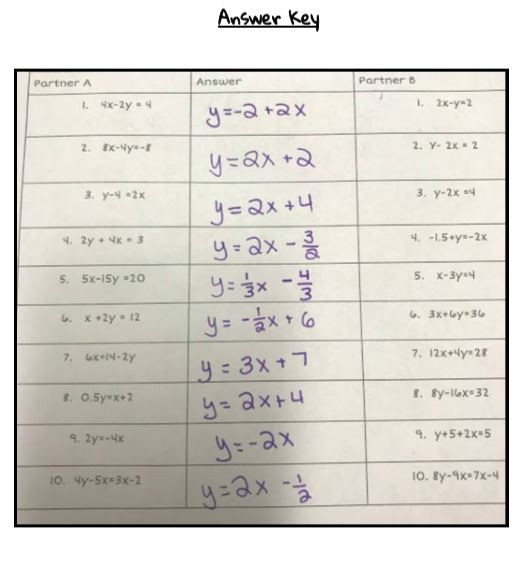 Answer Key
Partner A Answer Partner B
1. 4x-2y = 4 y=-2+2x 1. 2x-y=2
2. 8x-4y=-8 y=2x+2 2. y- 2x = 2
3. y-4 =2x y=2x+4 3. y-2x =4
4. 2y + 4x = 3 y=2x - 3/2 4. -1.5+y=-2x
5. 5x-15y =20 y= 1/3x - 4/3 5. x-3y=4
6. x +2y = 12 y= - 1/2x + 6 6. 3x+6y=36
7. 6x=14-2y y = 3x + 7 7. 12x+4y=28
8. 0.5y=x+2 y= 2x+4 8. 8y-16x=32
9. 2y=-4x y=-2x 9. y+5+2x=5
10. 4y-5x=3x-2 y=2x - 1/2 10. 8y-9x=7x-4